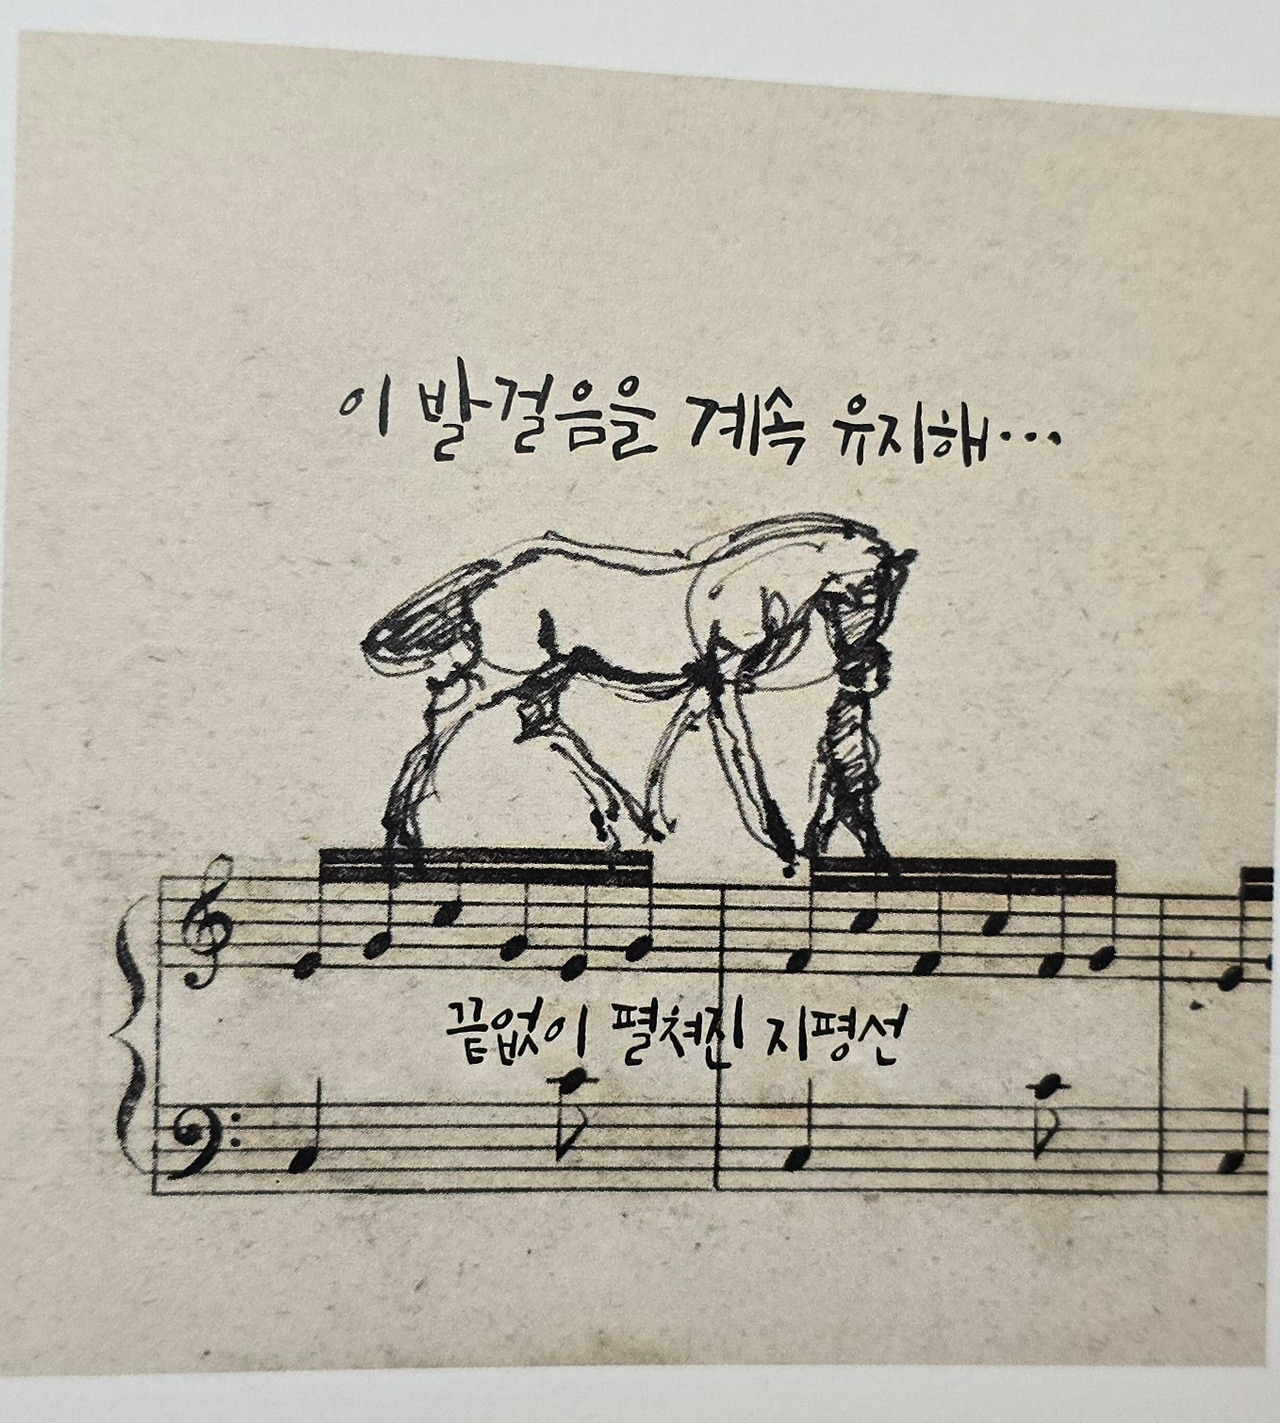 이 발걸음을 계속 유지해...
끝없이 펼쳐진 지평선